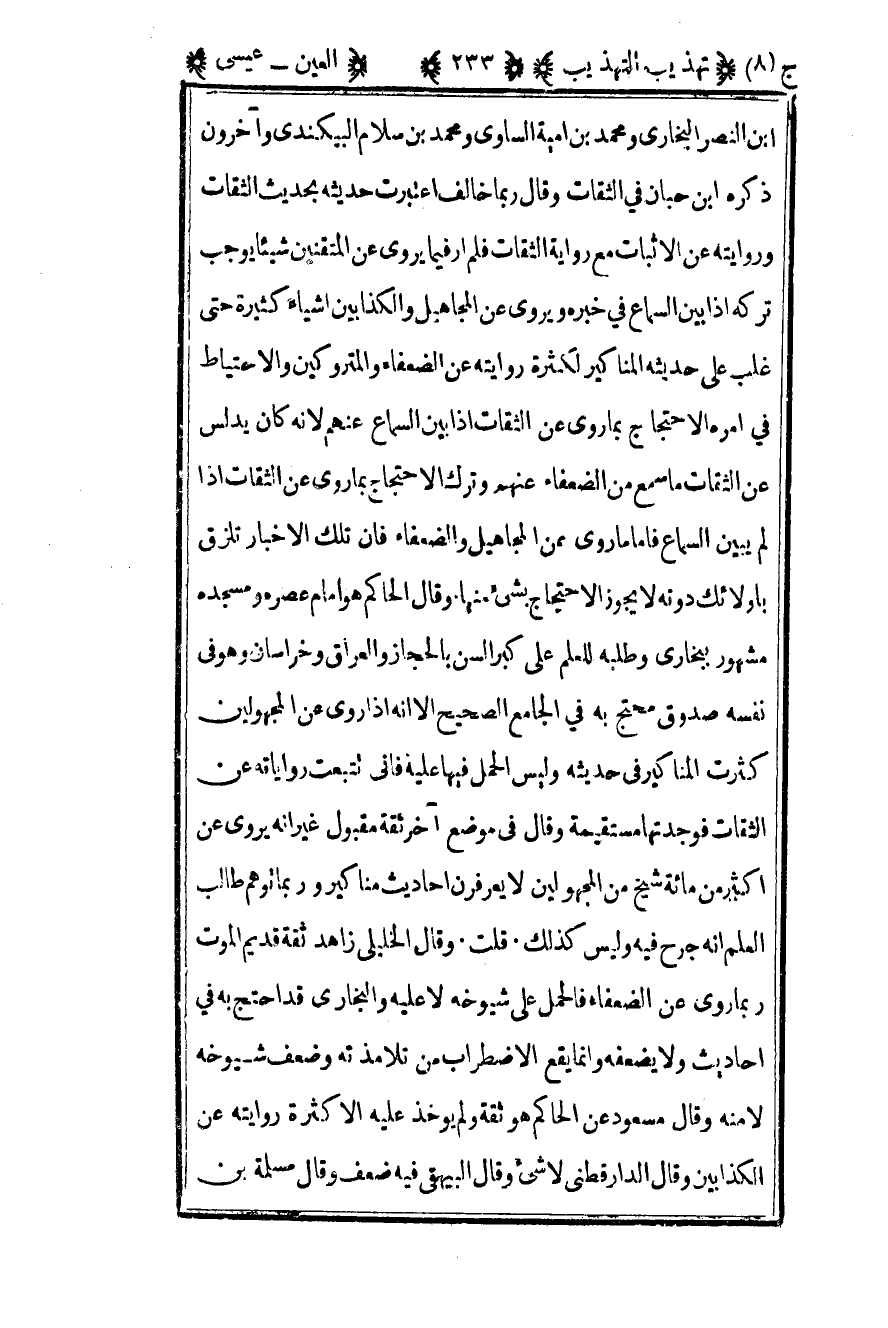 ج (٨) تهذيب التهذيب ٢٣٣ العين ــ عيسى
ابن النصر البخارى ومحمد بن امية الساوى ومحمد بن سلام البيكندى وآخرون
ذكره ابن حبان في الثقات وقال ربما خالف اعتبرت حديثه بحديث الثقات
وروايته عن الاثبات مع رواية الثقات فلم ارفيما يروى عن المتقنين شيئا يوجب
تركه اذا بين السماع في خبره ويروى عن المجاهيل والكذابين اشياء كثيرة حتى
غلب على حديثه المناكير لكثرة روايته عن الضعفاء والمتروكين والاحتياط
في امره الاحتجاج بماروى عن الثقات اذا بين السماع عنهم لانه كان يدلس
عن الثقات ماسمع من الضعفاء عنهم وترك الاحتجاج بماروى عن الثقات اذا
لم يبين السماع فاماماروى عن المجاهيل والضعفاء فان تلك الاخبار تلزق
باولائك دونه لا يجوز الاحتجاج بشئ منها. وقال الحاكم هو امام عصره ومسجده
مشهور ببخارى وطلبه للعلم على كبر السن بالحجاز والعراق وخراسان وهو فى
نفسه صدوق محتج به في الجامع الصحيح الا انه اذا روى عن المجهولين
كثرت المناكير فى حديثه وليس الحمل فيها عليه فانى تتبعت رواياته عن
الثقات فوجدتها مستقيمة وقال فى موضع آخر ثقة مقبول غير انه يروى عن
اكثر من مائة شيخ من المجهولين لا يعرفون احاديث مناكير وربما توهم طالب
العلم انه جرح فيه وليس كذلك. قلت. وقال الخليلى زاهد ثقة قديم الموت
ربماروى عن الضعفاء فالحمل على شيوخه لا عليه والبخارى قد احتج به في
احاديث ولا يضعفه وانما يقع الاضطراب من تلامذته وضعف شيوخه
لا منه وقال مسعود عن الحاكم هو ثقة ولم يوخذ عليه الا كثرة روايته عن
الكذابين وقال الدارقطنى لا شئ وقال البيهقى فيه ضعف وقال مسلمة بن